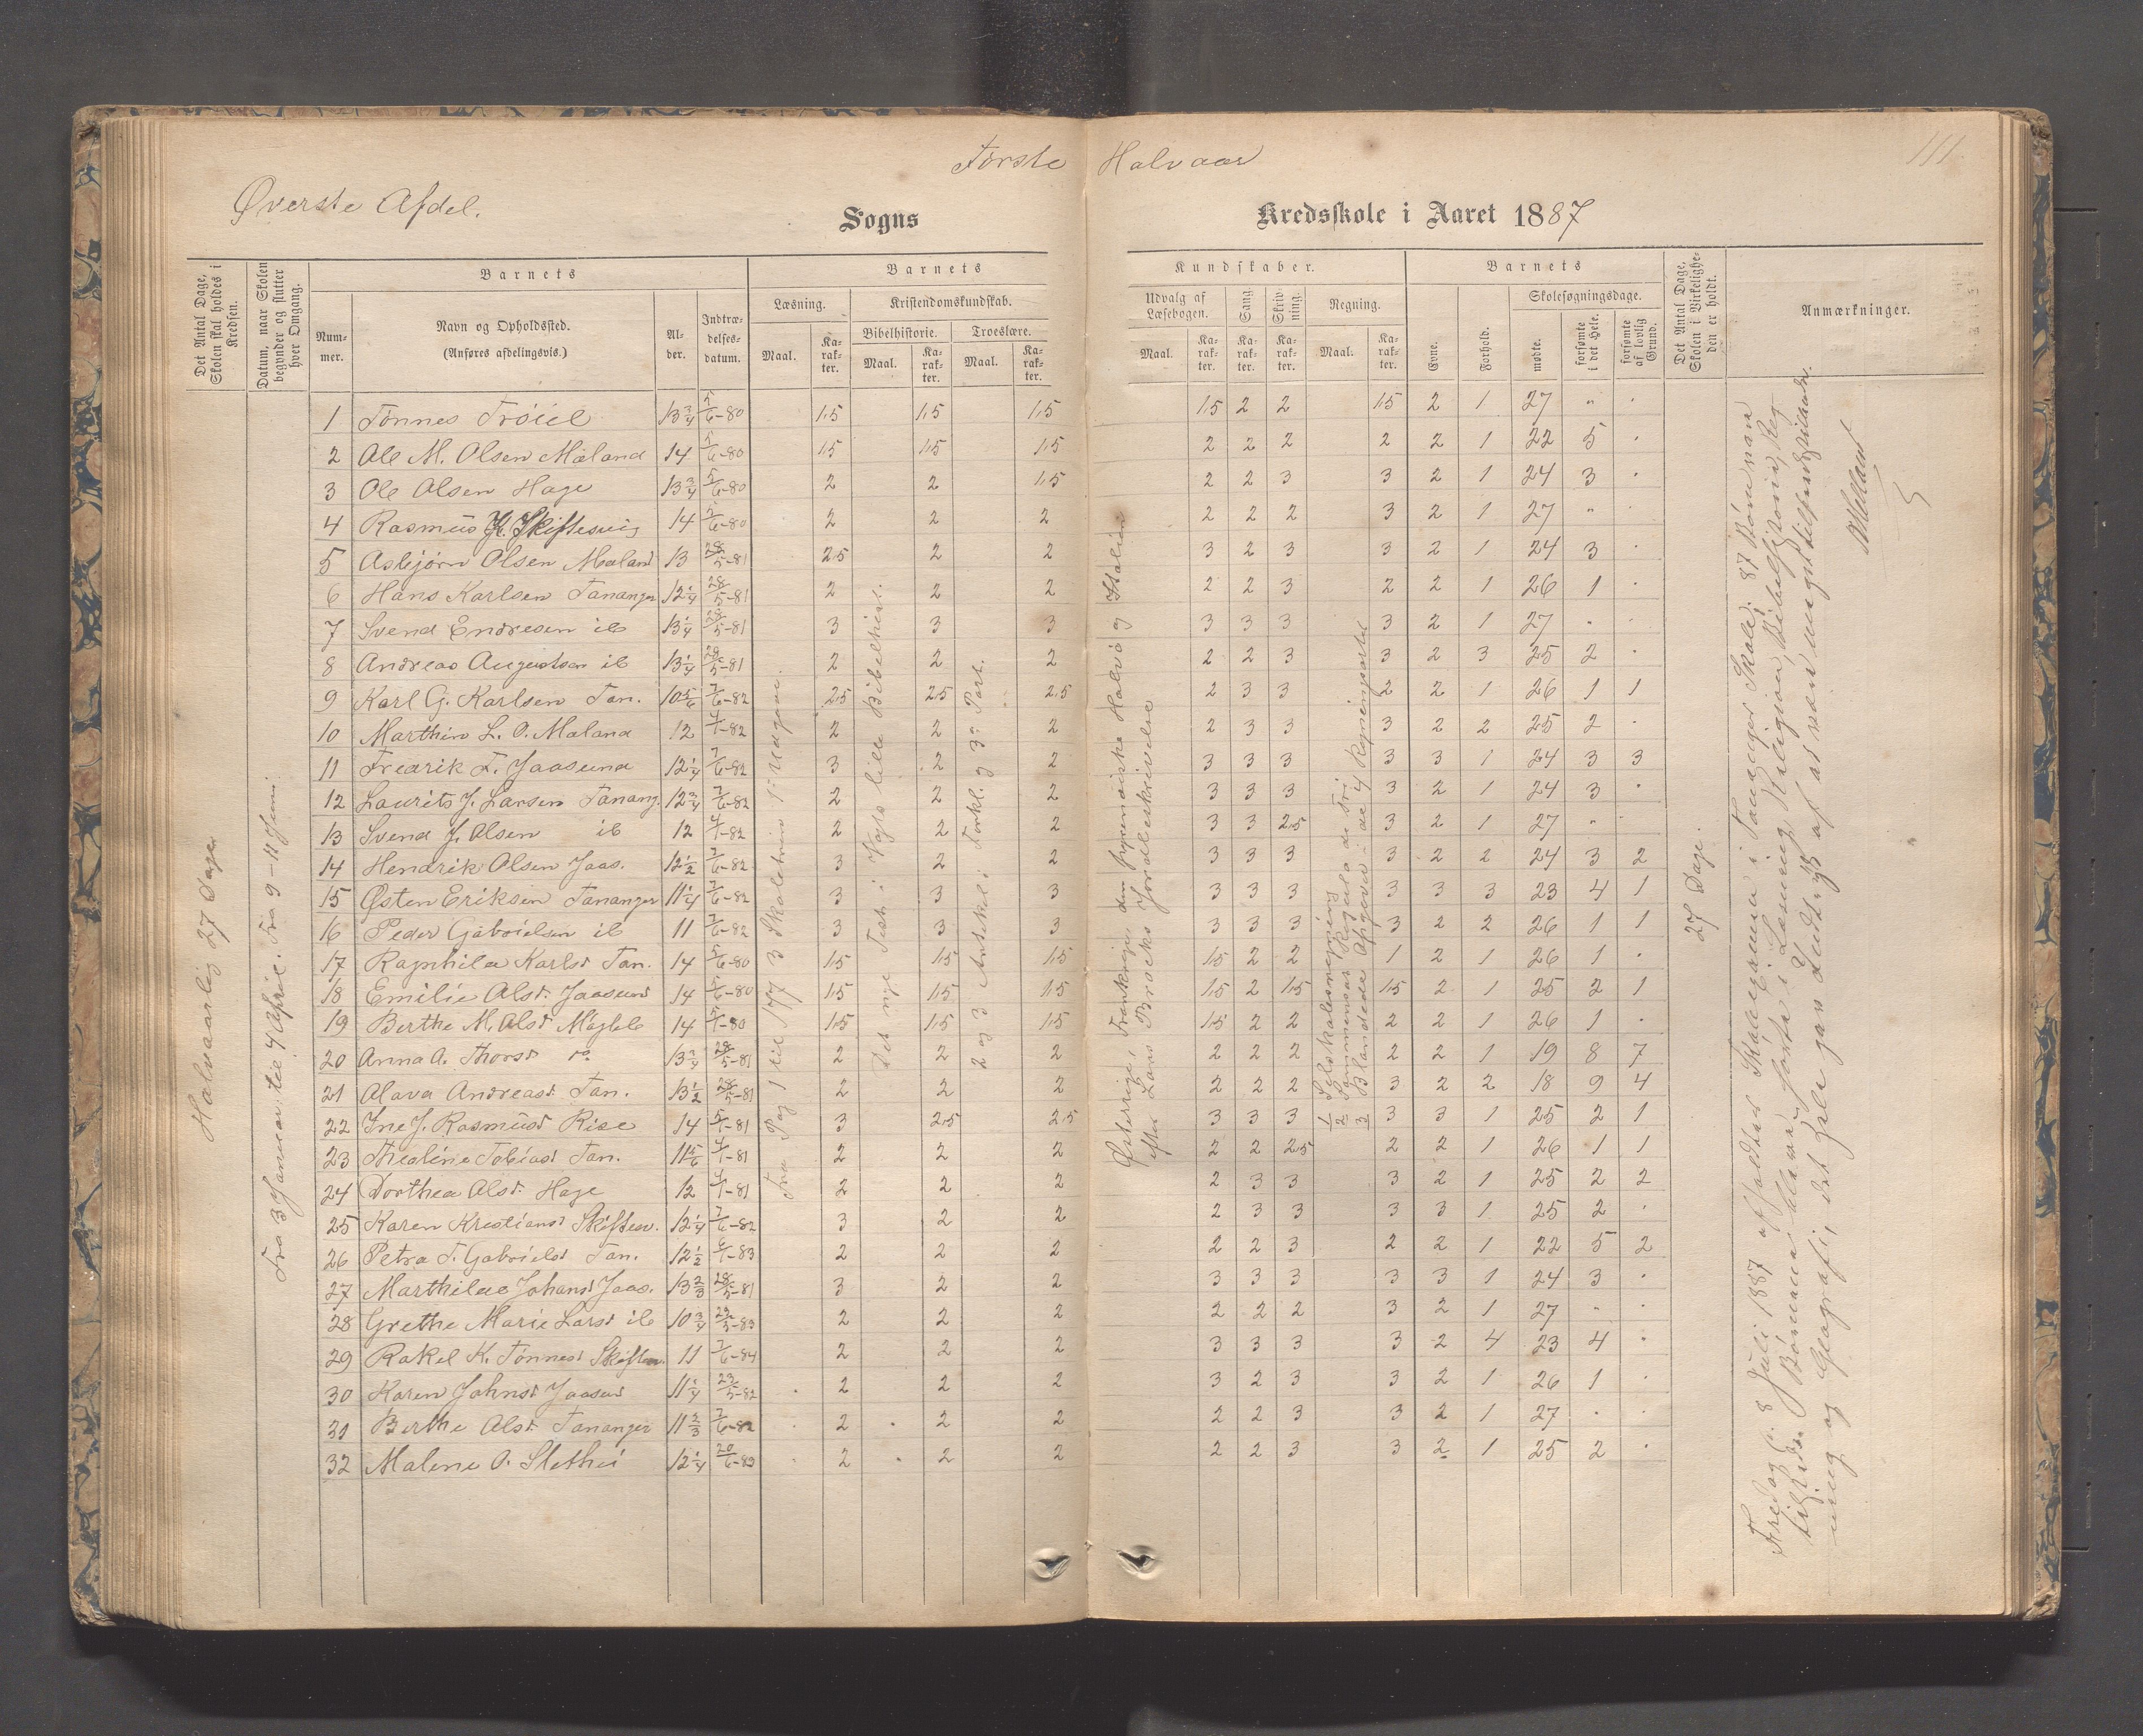 Første Halvaar
111
Øverste Afdel.
Sogns Kredsskole i Aaret 1887
Det Antal Dage, Skolen skal holdes i Kredsen.
Datum, naar Skolen begynder og slutter hver Omgang.
Barnets
Num-mer.
Navn og Opholdssted.
(Anføres afdelingsvis.)
Al-der.
Indtræ-delses-datum.
Barnets Kundskaber.
Læsning.
Maal.
Ka-rak-ter.
Kristendomskundskab.
Bibelhistorie.
Maal.
Ka-rak-ter.
Troeslære.
Maal.
Ka-rak-ter.
Udvalg af Læsebogen.
Maal.
Ka-rak-ter.
Sang.
Ka-rak-ter.
Skriv-ning.
Ka-rak-ter.
Regning.
Maal.
Ka-rak-ter.
Barnets
Evne.
Forhold.
Skolesøgningsdage.
mødte.
forsømte i det Hele.
forsømte af lovlig Grund.
Det Antal Dage, Skolen i Virkelighe-den er holdt.
Anmærkninger.
Halvaarlig 27 Dage
Fra 3 Januar til 4 April. Fra 9-11 Juni.
Fra Pag 1 til 177 3 Skoletrin 1ste Udgave.
Det nye Test: i Vogts lille Bibelhist.
2 og 3 Artikel i Forkl. og 3die Part.
Østerrige, Frankrige, den pyrenæiske Halvø og Italien
efter Lars Brocks Jordbeskrivelse
1 Selskabsregning
2 Sammensat Regula de tri
3 Blandede Opgaver - de 4 Regningsarter
27 Dage.
1 Tønnes Trøiel 13 3/4 5/6-80 1,5 1,5 1,5 1,5 2 2 1,5 2 1 27 " .
2 Ole M. Olsen Mæland 14 5/6-80 1,5 1,5 1,5 2 2 2 2 2 1 22 5 .
3 Ole Olsen Hage 13 3/4 5/6-80 2 2 1,5 2 2 3 3 2 1 24 3 .
4 Rasmus K. Skiftesvig 14 5/6-80 2 2 2 2 2 2 3 2 1 27 " .
5 Asbjørn Olsen Mæland 13 28/5-81 2,5 2 2 3 2 3 3 2 1 24 3 .
6 Hans Karlsen Tananger 12 1/4 28/5-81 2 2 2 2 2 3 2 2 1 26 1 .
7 Svend Endresen ib 13 1/4 28/5-81 3 3 3 3 3 3 3 2 1 27 . .
8 Andreas Augustsen ib 13 1/4 28/5-81 2 2 2 2 2 3 3 2 3 25 2 .
9 Karl G. Karlsen Tan. 10 5/6 7/6-82 2,5 2,5 2,5 2 3 3 2 2 1 26 1 1
10 Marthin L. O. Mæland 12 4/1-82 2 2 2 2 3 3 3 2 2 25 2 .
11 Fredrik F. Jaasund 12 1/4 7/6-82 3 2 2 3 3 3 3 3 1 24 3 3
12 Laurits J. Larsen Tanang. 12 3/4 7/6-82 2 2 2 3 3 3 3 2 1 24 3 .
13 Svend J. Olsen ib 12 4/1-82 2 2 2 3 3 2,5 3 2 1 27 " .
14 Hendrik Olsen Jaas. 12 1/2 7/6-82 3 2 2 3 3 3 3 2 2 24 3 2
15 Østen Eriksen Tananger 11 1/4 7/6-82 3 3 3 3 3 3 3 3 3 23 4 1
16 Peder Gabrielsen ib 11 7/6-82 3 3 3 3 3 3 3 2 2 26 1 1
17 Ragnhild Karlsd Tan. 14 5/6-80 1,5 1,5 1,5 1,5 2 2 1 2 1 26 1 .
18 Emilie Olsd. Jaasund 14 5/6-80 1,5 1,5 1,5 1,5 2 1,5 1,5 2 1 25 2 1
19 Berthe M. Olsd Mygleb 14 5/1-80 1,5 1,5 1,5 1,5 2 2 2 2 1 26 1 .
20 Anna A. Thorsd do 13 3/4 28/5-81 2 2 2 2 2 2 2 2 1 19 8 7
21 Olava Andreasd. Tan. 13 1/2 28/5-81 2 2 2 2 2 2 3 2 2 18 9 4
22 Ine J. Rasmusd Risa 14 5/1-81 3 2,5 2,5 3 3 3 3 3 1 25 2 1
23 Thealine Tobiasd Tan. 11 5/6 4/1-81 2 2 2 2 2 2,5 2 2 1 26 1 1
24 Dorthea Olsd. Hage 12 4/1-81 2 2 2 2 3 3 3 2 1 25 2 2
25 Karen Kristiansd Skiftesv. 12 1/4 7/6-82 3 2 2 2 3 3 3 3 1 25 2 .
26 Petra T. Gabrielsd Tan. 12 1/2 6/1-83 2 2 2 2 2 3 2 2 1 22 5 2
27 Marthilae Johansd Jaas. 13 2/3 28/5-81 3 2 2 3 3 3 3 3 1 24 3 .
28 Grethe Marie Larsd ib 10 3/4 23/5-83 2 2 2 2 2 2 3 2 1 27 " .
29 Rakel K. Tønnesd Skiftesv. 11 7/6-84 2 2 2 3 3 3 3 2 4 23 4 .
30 Karen Johnsd Jaasund 11 1/4 23/5-82 2 2 2 3 2 3 3 2 1 26 1 .
31 Berthe Olsd. Tananger 11 2/3 7/6-82 2 2 2 2 2 3 3 2 1 27 . .
32 Malene O. Slethei 12 1/4 20/6-82 2 2 2 2 2 3 3 2 1 25 2 .
Fredag d. 8 Juli 1887 afholdtes Skoleexamen i Tananger Skole. 37 Børn vare
tilstede. Børnene blev prøvede i Læsning, Religion, Bibelhistorie, Reg-
ning og Geografi, det Hele gav Indtryk af at være meget tilfredsstillende.